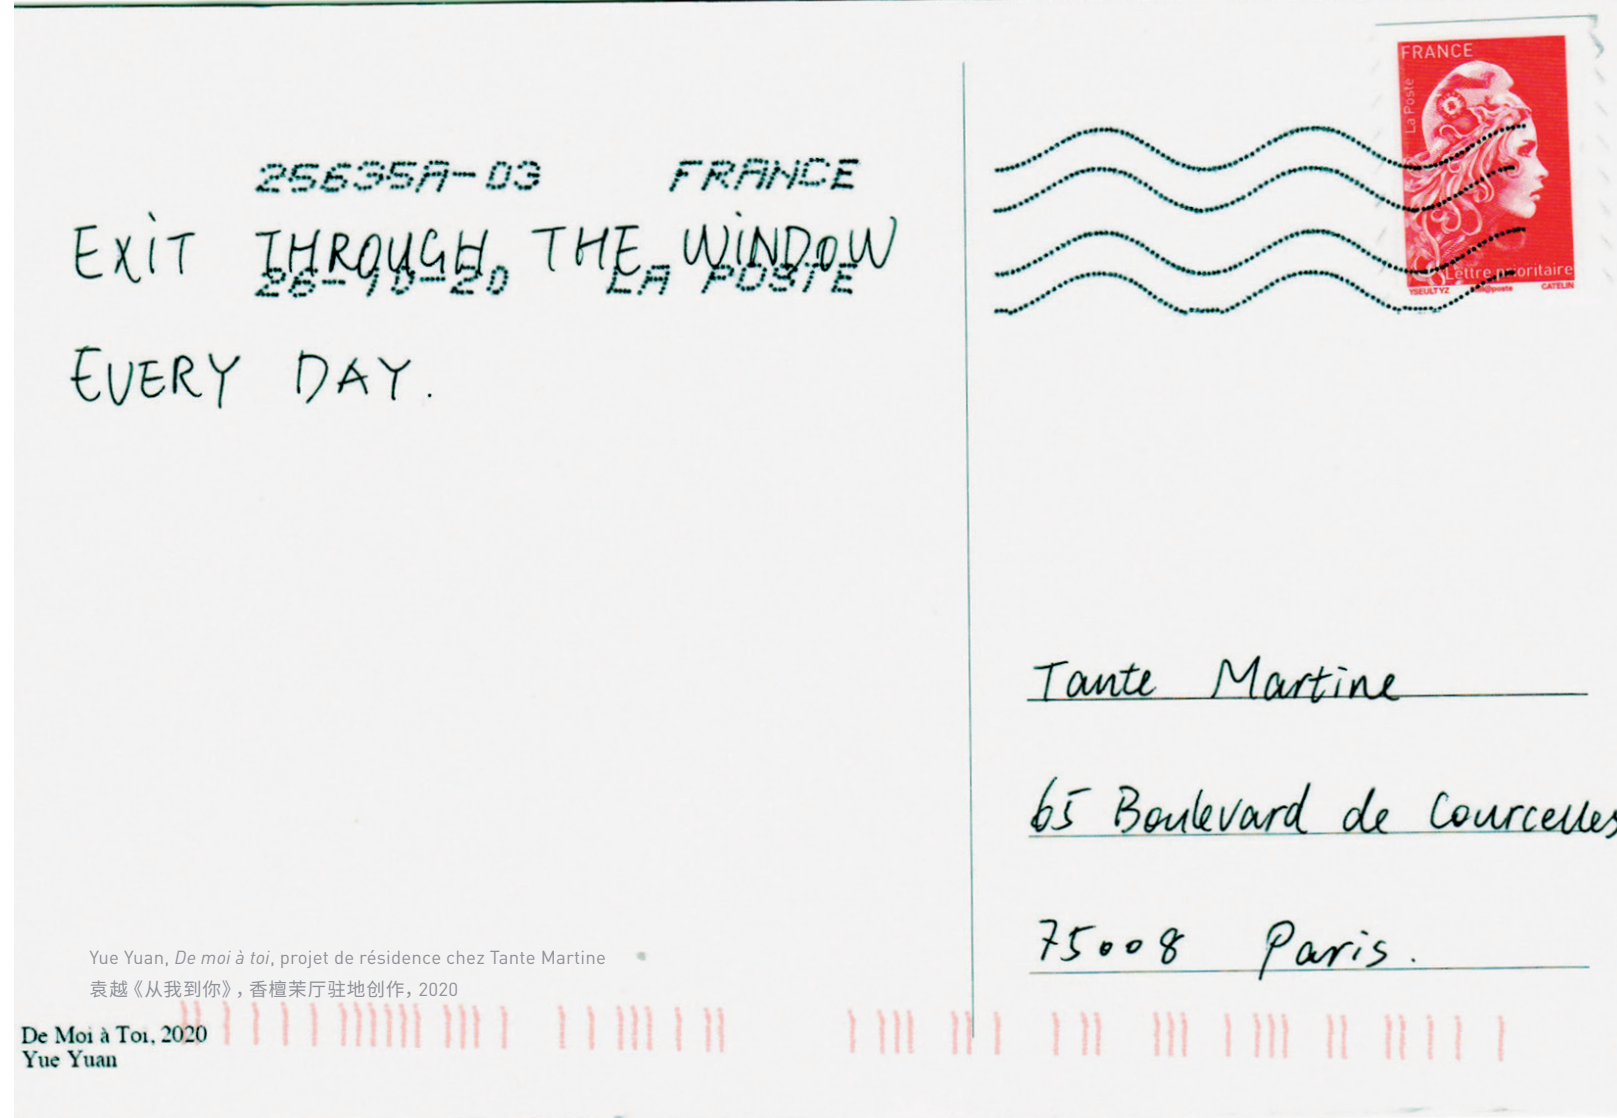 25635A-03 FRANCE
EXIT THROUGH THE WINDOW
26-10-20 LA POSTE
EVERY DAY.
FRANCE
La Poste
Lettre prioritaire
YSEULT YZ @poste CATELIN
Tante Martine
65 Boulevard de Courcelles
75008 Paris.
Yue Yuan, De moi à toi, projet de résidence chez Tante Martine
袁越《从我到你》，香檀茉厅驻地创作，2020
De Moi à Toi, 2020
Yue Yuan